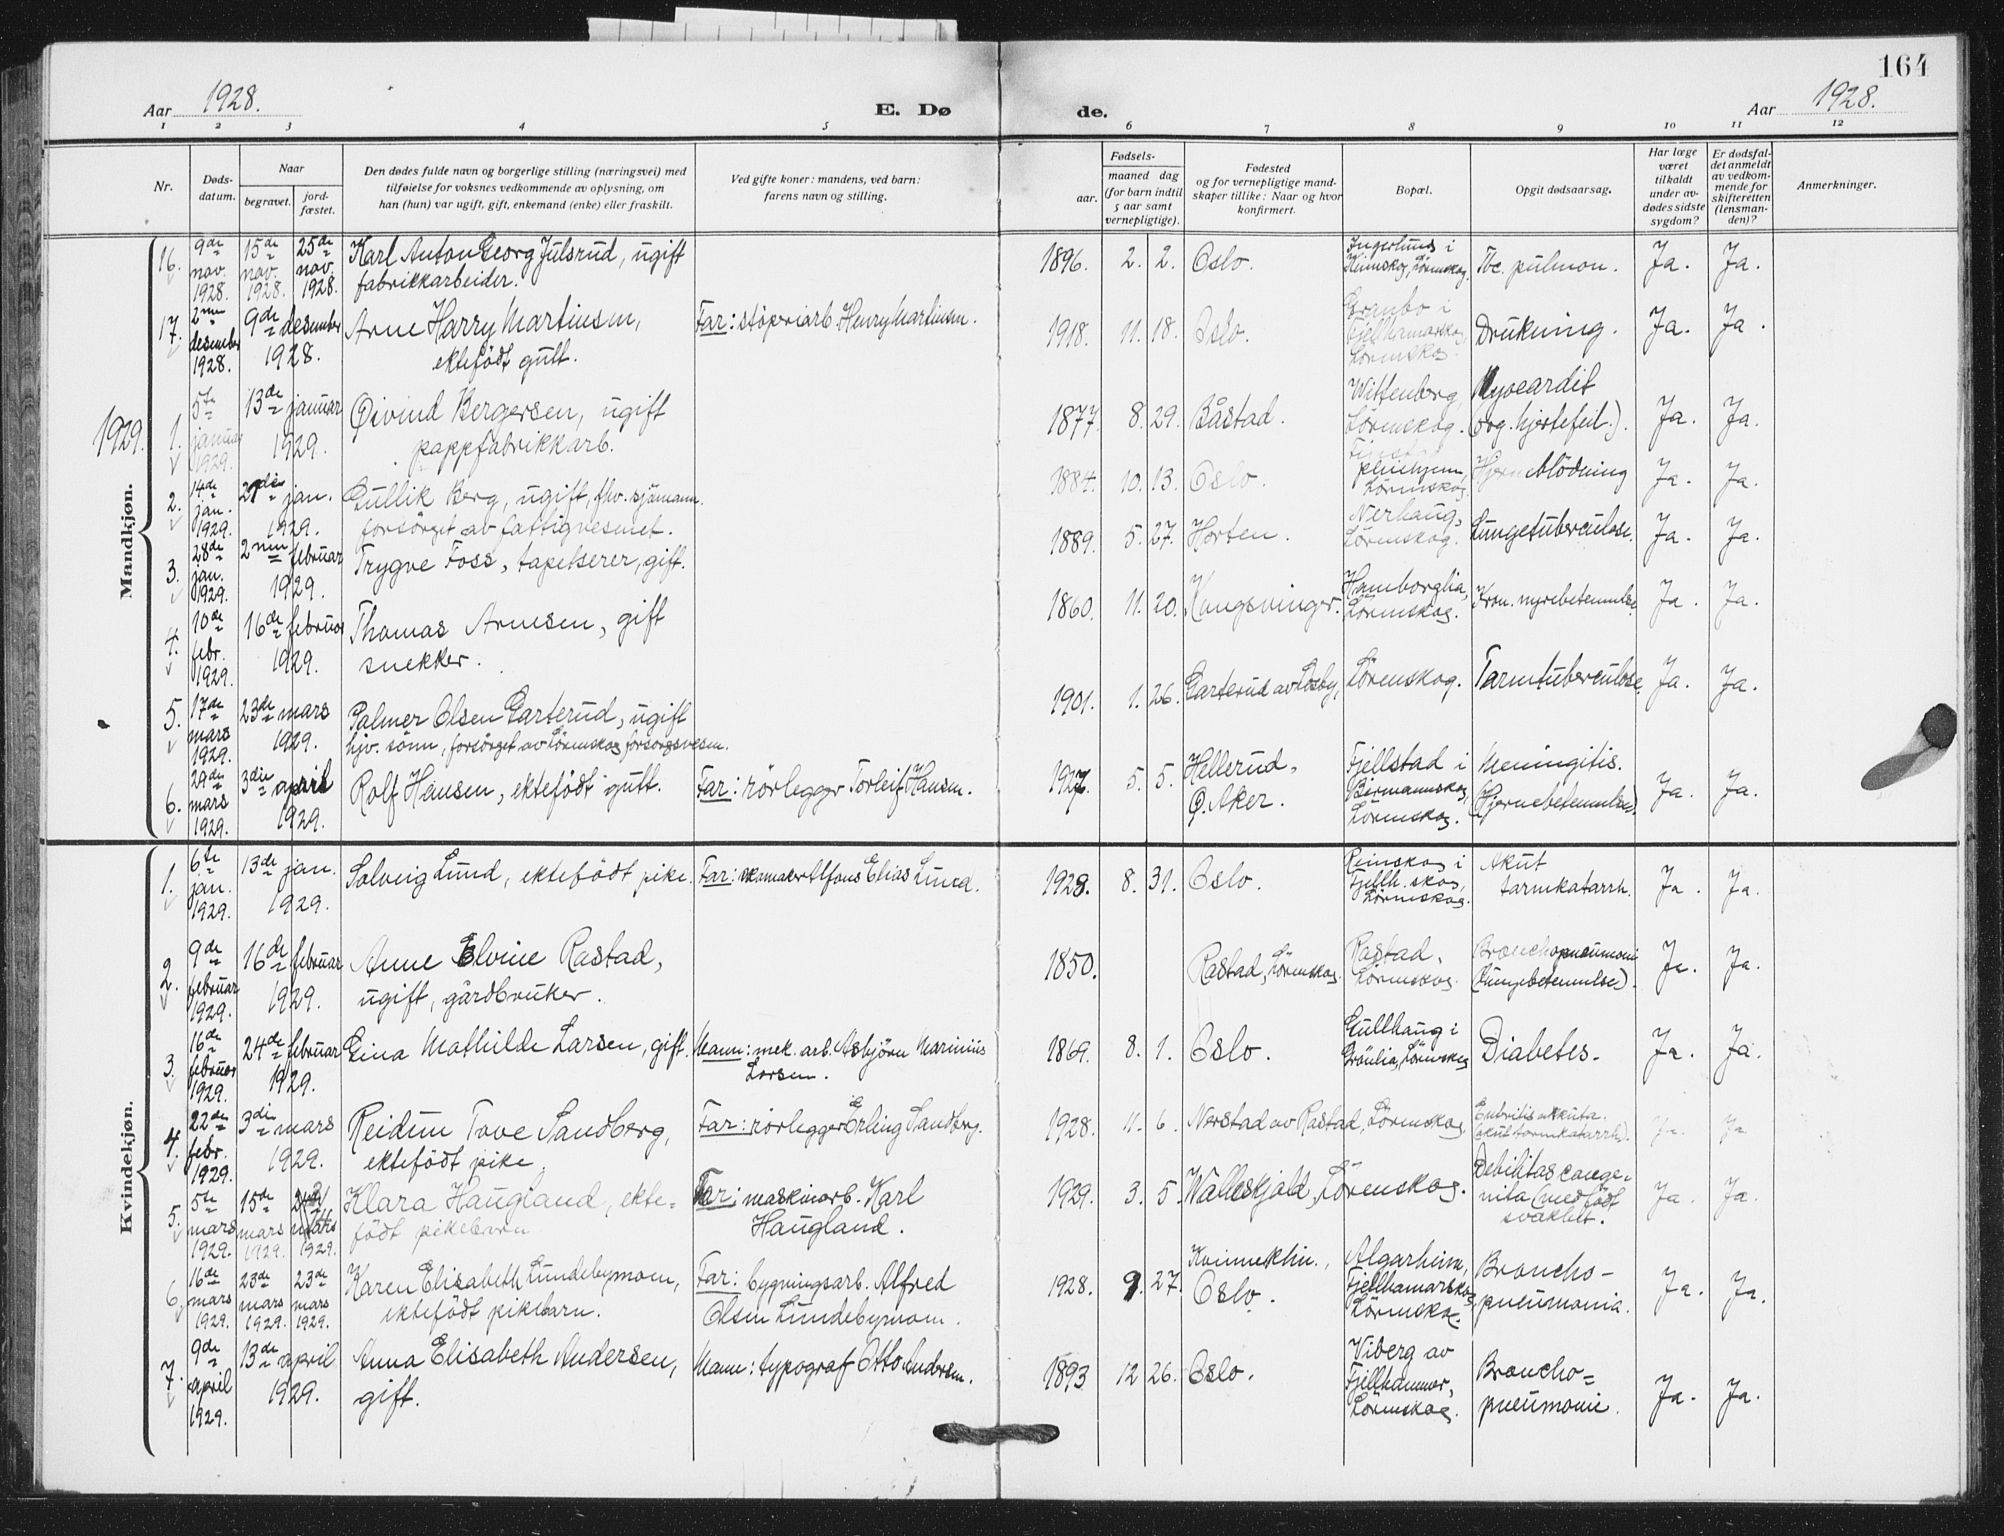 164
Aar 1928.
E. Dø
de.
Aar 1928.
1 2 3 4 5 6 7 8 9 10 11 12
Nr.
Døds-
datum.
Naar
begravet.
jord-
fæstet.
Den dødes fulde navn og borgerlige stilling (næringsvei) med
tilføielse for voksnes vedkommende av oplysning, om
han (hun) var ugift, gift, enkemand (enke) eller fraskilt.
Ved gifte koner: mandens, ved barn:
farens navn og stilling.
Fødsels-
aar.
maaned dag
(for barn indtil
5 aar samt
vernepligtige).
Fødested
og for vernepligtige mand-
skaper tillike: Naar og hvor
konfirmert.
Bopæl.
Opgit dødsaarsag.
Har læge
været
tilkaldt
under av-
dødes sidste
sygdom?
Er dødsfal-
det anmeldt
av vedkom-
mende for
skifteretten
(lensman-
den)?
Anmerkninger.
Mandkjøn.
16. 9de nov. 1928. 15de nov. 1928. 25de nov. 1928. Karl Anton Georg Julsrud, ugift
fabrikkarbeider.
1896. 2. 2. Oslo. i Lörenskog. Tbc. pulmon. Ja. Ja.
17. 2nen desember 1928. 9de desember 1928. Arne Harry Martinsen,
ektefödt gutt.
Far: støperiarb. Henry Martinsen.
1918. 11. 18. Oslo. Granbo i
Fjellhamarskog,
Lörenskog.
Drukning. Ja. Ja.
1929.
1. 5te januar 1929. 13de januar 1929. Øivind Bergersen, ugift
pappfabrikkarb.
1877. 8. 29. Båstad. Wittenberg,
Lörenskog.
Myocardit
(og. hjertefeil.). Ja. Ja.
2. 14de jan. 1929. jan. 1929. Gullik Berg, ugift, fhv. sjømann.
forsörget av fattigvesenet.
1884. 10. 13. Oslo. pleiehjem,
Lörenskog.
Hjerneblödning Ja. Ja.
3. 28de jan. 1929. 2nen februar 1929. Trygve Foss, tapetserer, gift.
1889. 5. 27. Horten. Nerhaug,
Lörenskog.
Lungetuberculose. Ja. Ja.
4. 10de febr. 1929. 16de februar 1929. Thomas Arnesen, gift
snekker.
1860. 11. 20. Kongsvinger. Hamborglia,
Lörenskog.
Kron. nyrebetennelse Ja. Ja.
5. 17de mars 1929. 23de mars 1929. Palmer Olsen Garterud, ugift
hjv. sönn, forsörget av Lörenskog forsorgsvesen.
1901. 1. 26. Garterud av Losby, Lörenskog. Tarmtuberculose. Ja. Ja.
6. 29de mars 1929. 3die april 1929. Rolf Hansen, ektefödt gutt. Far: rörlegger Torleif Hansen.
1927. 5. 5. Hellerud,
Ø. Aker.
Fjellstad i
Lörenskog.
Meningitis.
(Hjernebetennelse). Ja. Ja.
Kvindekjøn.
1. 6te jan. 1929. 13de jan. 1929. Solveig Lund, ektefödt pike. Far: skomaker Alfons Elias Lund.
1928. 8. 31. Oslo. i
Fjellh. skog,
Lörenskog.
Akut
tarmkatarrh. Ja. Ja.
2. 9de februar 1929. 16de februar 1929. Anne Elvine Rastad,
ugift, gårdbruker.
1850. Rastad, Lörenskog. Rastad,
Lörenskog.
Bronchopneumoni
(lungebetennelse). Ja. Ja.
3. 16de februar 1929. 24de februar 1929. Gina Mathilde Larsen, gift. Mann: mek. arb. Asbjörn Marinius
Larsen.
1869. 8. 1. Oslo. Gullhaug i
Grönlia, Lörenskog
Diabetes. Ja. Ja.
4. 22de febr. 1929. 3die mars 1929. Reidun Tove Sandberg,
ektefödt pike.
Far: rörlegger Erling Sandberg.
1928. 11. 6. Nerstad av Rastad, Lörenskog.
(akut tarmkatarrh). Ja. Ja
5. 5te mars 1929. 15de mars 1929. mars 1929. Klara Haugland, ekte-
födt pikebarn
Far: maskinarb. Karl
Haugland.
1929. 3. 5. Lörenskog. Debilitas conge-
nita (medfödt
svakhet. Ja. Ja.
6. 16de mars 1929. 23de mars 1929. 23de mars 1929. Karen Elisabeth Lundebymoen,
ektefödt pikebarn.
Far: bygningsarb. Alfred
Olsen Lundebymoen.
1928. 9. 27. Kvinneklin.,
Oslo.
Algarheim,
Fjellhamarskog,
Lörenskog.
Broncho-
pneumonia. Ja. Ja.
7. 9de april 1929. 13de april 1929. Anna Elisabeth Andersen,
gift.
Mann: typograf Otto Andersen.
1893 12 26. Oslo. Viberg av
Fjellhammer,
Lörenskog.
Broncho=
pneumonie. Ja. Ja.